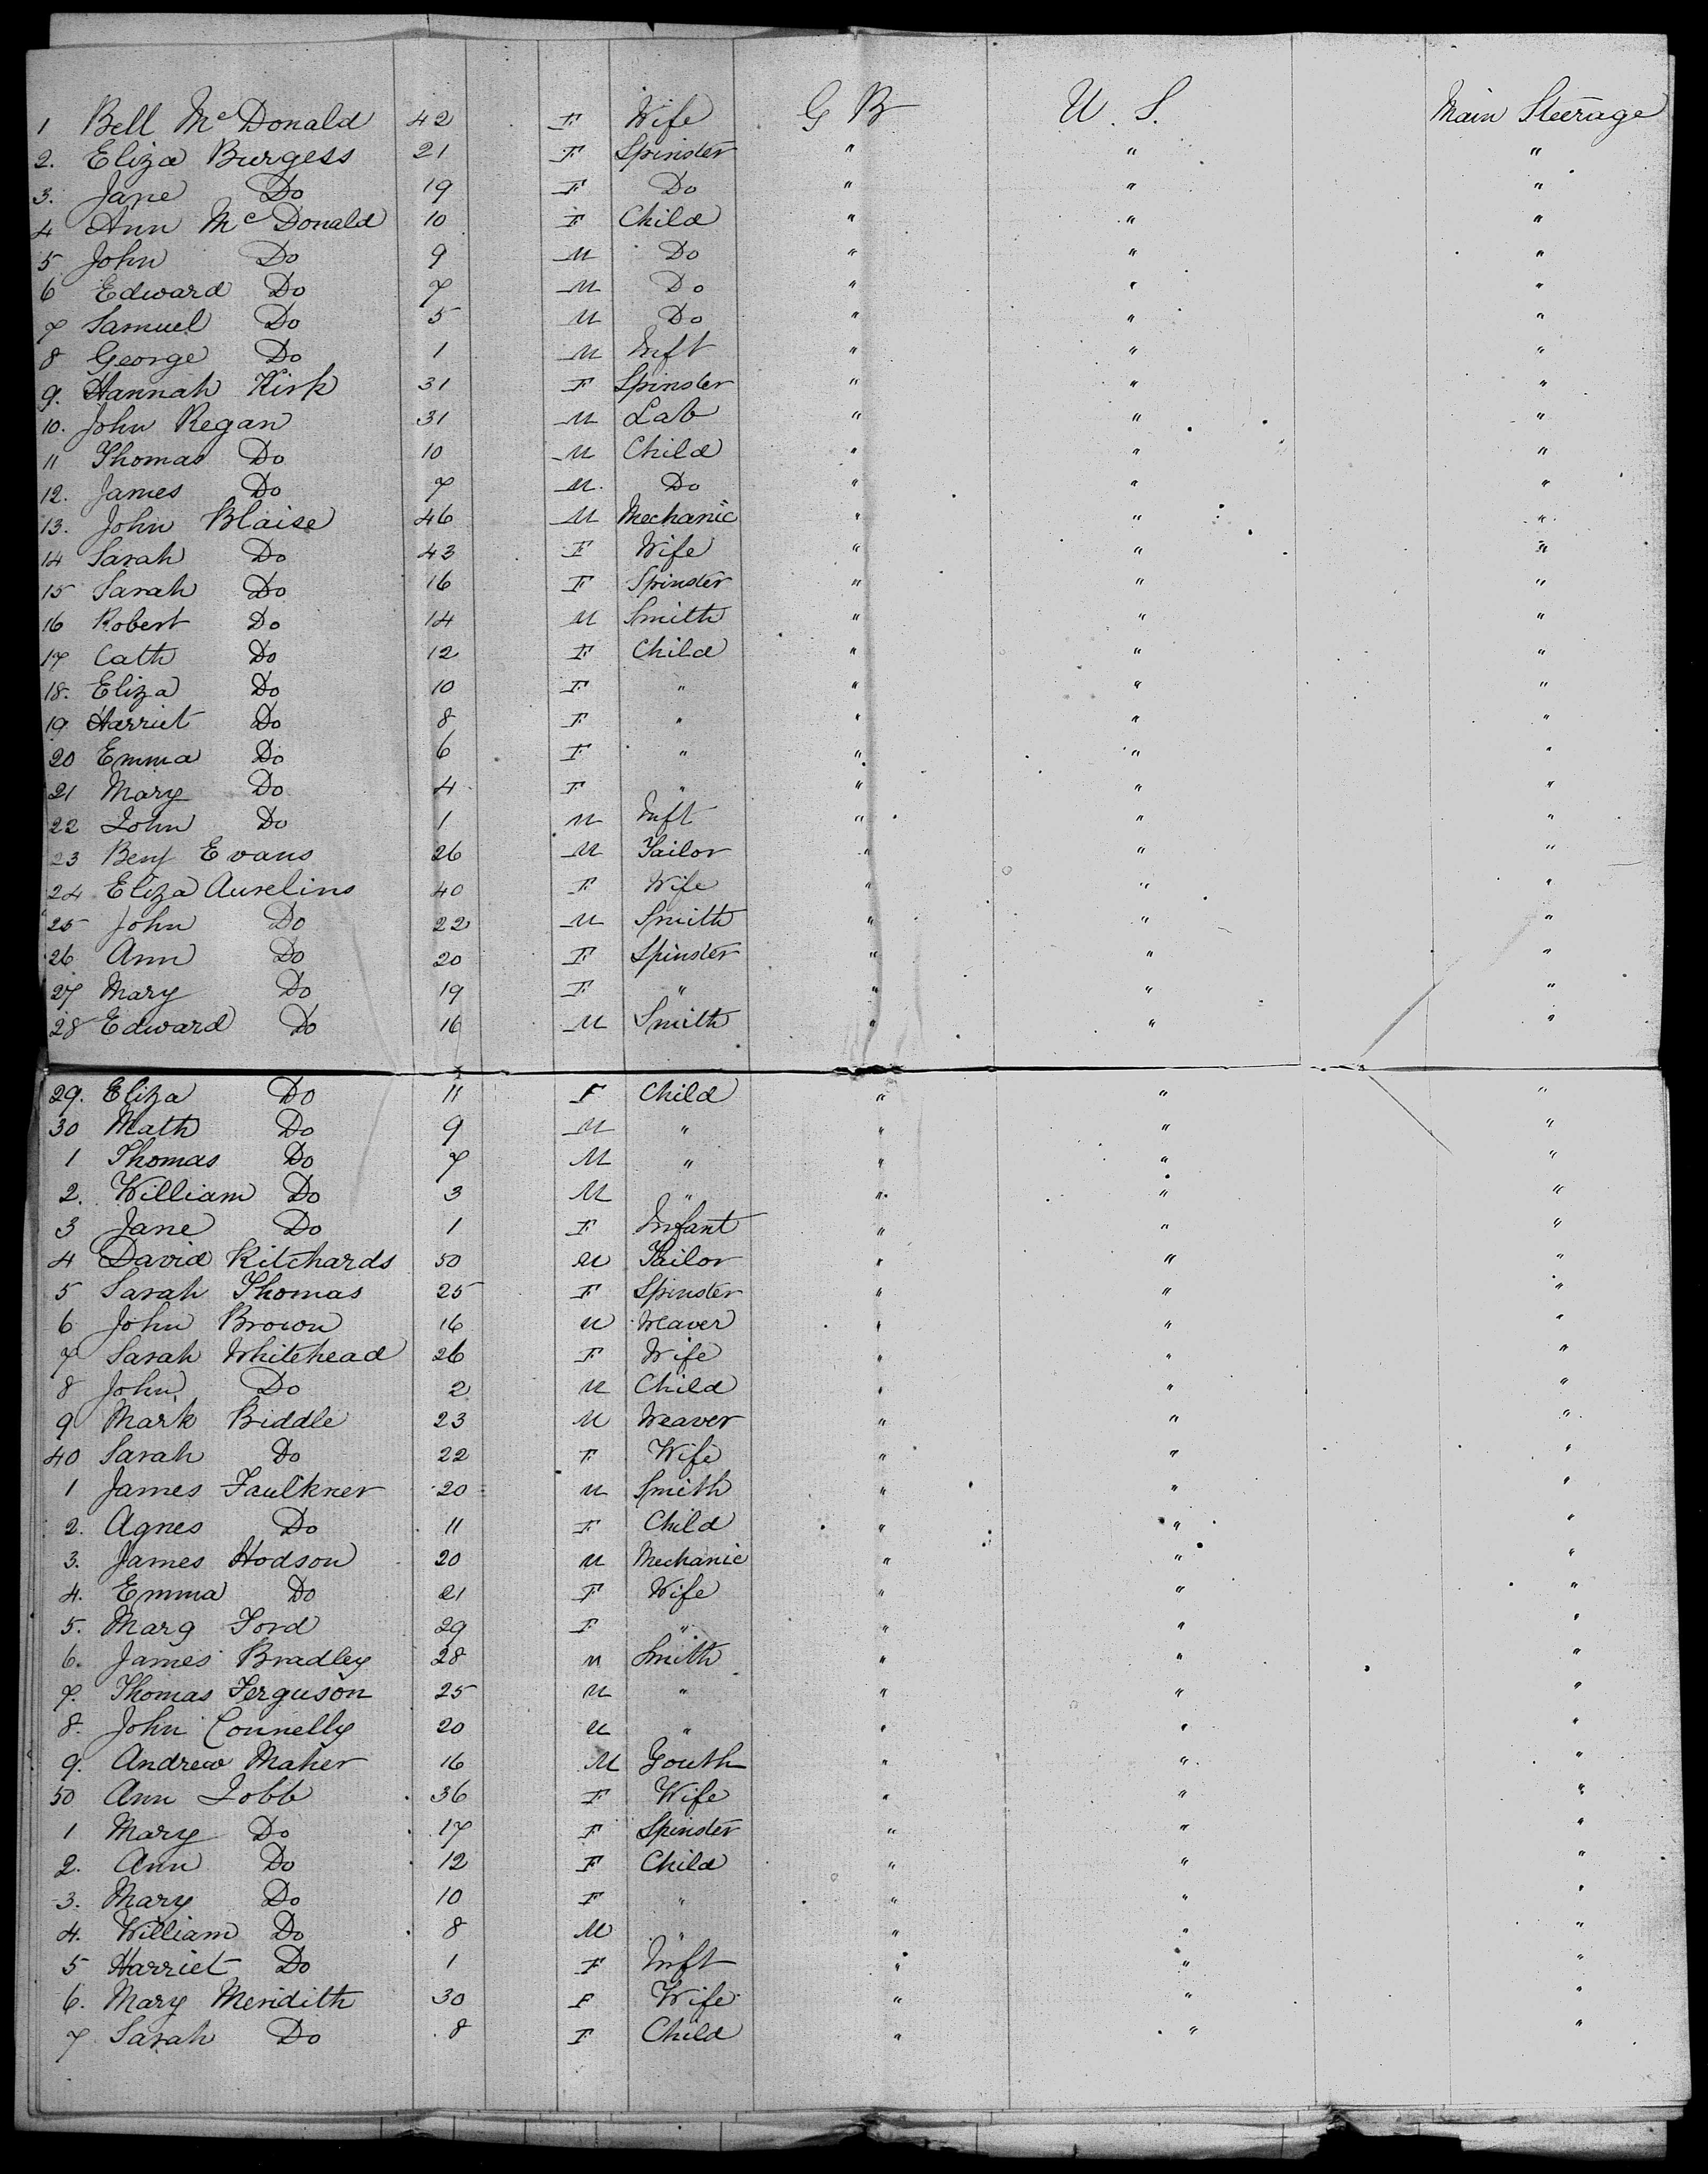 1 Bell McDonald 42 F Wife G B U. S. Main Steerage
2. Eliza Burgess 21 F Spinster " " "
3. Jane Do 19 F Do " " "
4 Ann McDonald 10 F Child " " "
5 John Do 9 M Do " " "
6 Edward Do 7 M Do " " "
7 Samuel Do 5 M Do " " "
8 George Do 1 M Inft " " "
9. Hannah Kirk 31 F Spinster " " "
10. John Regan 31 M Lab " " "
11 Thomas Do 10 M Child " " "
12. James Do 7 M. Do " " "
13. John Blaise 46 M Mechanic " " "
14 Sarah Do 43 F Wife " " "
15 Sarah Do 16 F Spinster " " "
16 Robert Do 14 M Smith " " "
17 Cath Do 12 F Child " " "
18. Eliza Do 10 F " " " "
19 Harriet Do 8 F " " " "
20 Emma Do 6 F " " " "
21 Mary Do 4 F " " " "
22 John Do 1 M Inft " " "
23 Benj Evans 26 M Tailor " " "
24 Eliza Aurelins 40 F Wife " " "
25 John Do 22 M Smith " " "
26 Ann Do 20 F Spinster " " "
27 Mary Do 19 F " " " "
28 Edward Do 16 M Smith " " "
29. Eliza Do 11 F Child " " "
30 Math Do 9 M " " " "
1 Thomas Do 7 M " " " "
2. William Do 3 M " " " "
3 Jane Do 1 F Infant " " "
4 David Ritchards 50 M Tailor " " "
5 Sarah Thomas 25 F Spinster " " "
6 John Brown 16 M Weaver " " "
7 Sarah Whitehead 26 F Wife " " "
8 John Do 2 M Child " " "
9 Mark Biddle 23 M Weaver " " "
40 Sarah Do 22 F Wife " " "
1 James Faulkner 20 M Smith " " "
2. Agnes Do 11 F Child " " "
3. James Hodson 20 M Mechanic " " "
4. Emma Do 21 F Wife " " "
5. Marg Ford 29 F " " " "
6. James Bradley 28 M Smith " " "
7. Thomas Ferguson 25 M " " " "
8. John Connelly 20 M " " " "
9. Andrew Maher 16 M Youth " " "
50 Ann Jobb 36 F Wife " " "
1 Mary Do 17 F Spinster " " "
2. Ann Do 12 F Child " " "
3. Mary Do 10 F " " " "
4. William Do 8 M " " " "
5 Harriet Do 1 F Inft " " "
6. Mary Meridith 30 F Wife " " "
7 Sarah Do 8 F Child " " "